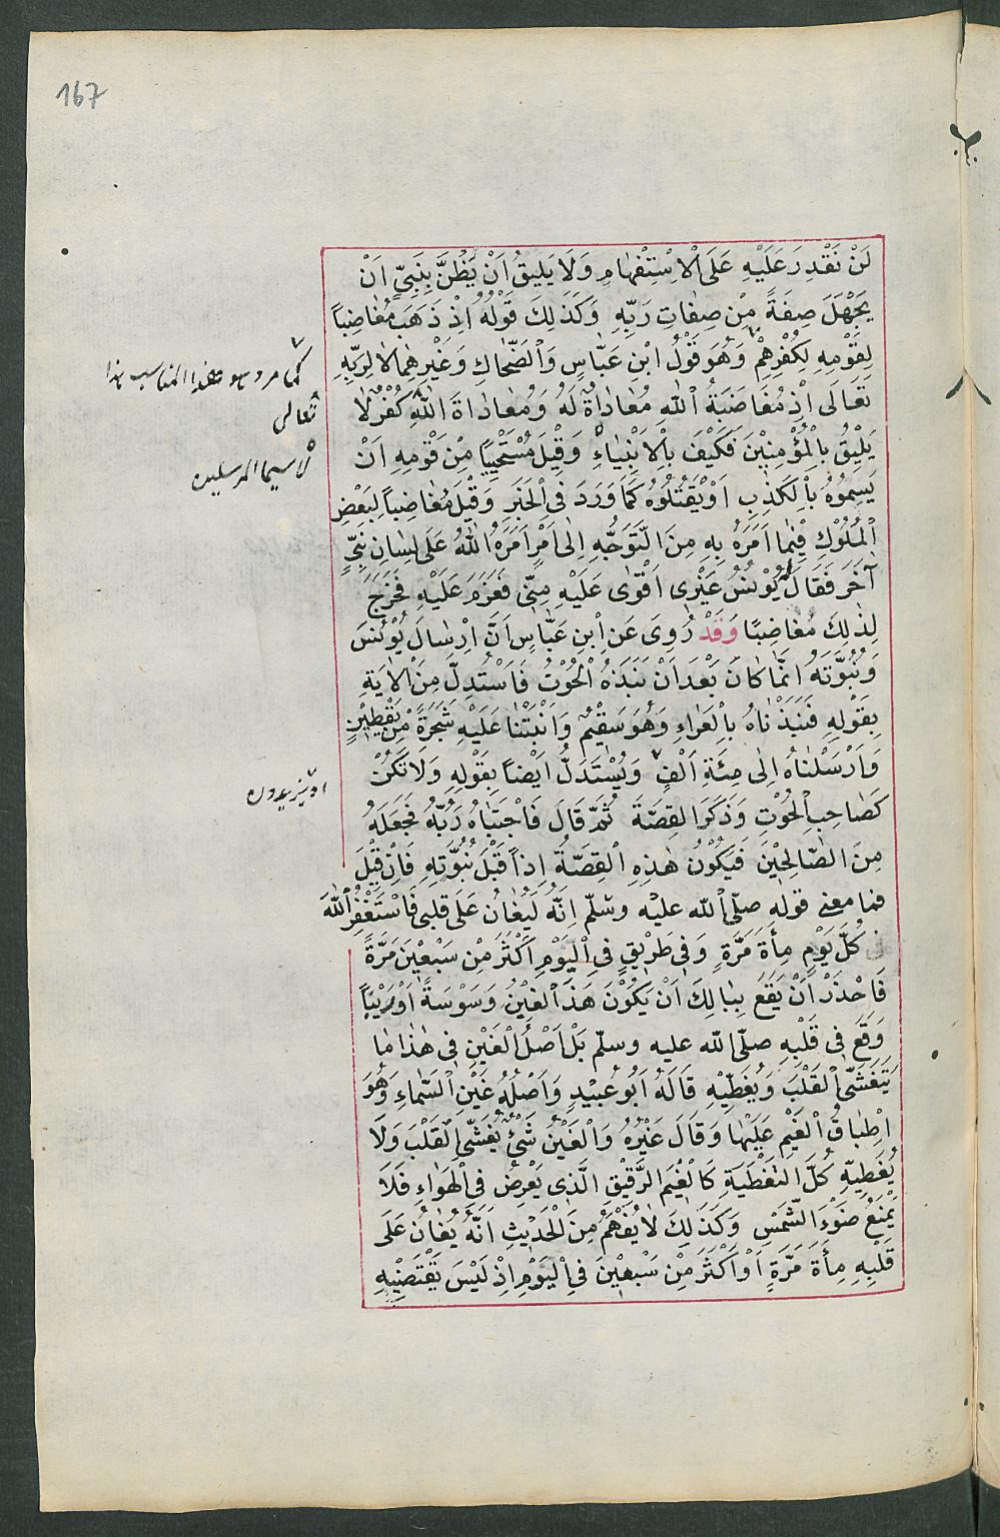 167
لَنْ نَقْدِرَ عَلَيْهِ عَلَى الْاِسْتِفْهَامِ وَلَا يَلِيقُ اَنْ يَظُنَّ بِنَبِيٍّ اَنْ
يَجْهَلَ صِفَةً مِنْ صِفَاتِ رَبِّهِ وَكَذَلِكَ قَوْلُهُ اِذْ ذَهَبَ مُغَاضِبًا
لِقَوْمِهِ لِكُفْرِهِمْ وَهُوَ قَوْلُ ابْنِ عَبَّاسٍ وَالضَّحَّاكِ وَغَيْرِهِمَا لَا لِرَبِّهِ
تَعَالَى اِذْ مُغَاضَبَةُ اللّٰهِ مُعَادَاةٌ لَهُ وَمُعَادَاةَ اللّٰهِ كُفْرٌ لَا
يَلِيْقُ بِالْمُؤْمِنِيْنَ فَكَيْفَ بِالْاَنْبِيَاءِ وَقِيْلَ مُسْتَحْيِيًا مِنْ قَوْمِهِ اَنْ
يَسِمُوْهُ بِالْكَذِبِ اَوْ يَقْتُلُوْهُ كَمَا وَرَدَ فِى الْخَبَرِ وَقِيْلَ مُغَاضِبًا لِبَعْضِ
الْمُلُوْكِ فِيْمَا اَمَرَهُ بِهِ مِنَ التَّوَجُّهِ اِلٰى اَمْرٍ اَمَرَهُ اللّٰهُ عَلَى لِسَانِ نَبِيٍّ
آخَرَ فَقَالَ يُوْنُسُ غَيْرِى اَقْوٰى عَلَيْهِ مِنِّى فَعَزَمَ عَلَيْهِ فَخَرَجَ
لِذٰلِكَ مُغَاضِبًا وَقَدْ رُوِىَ عَنِ ابْنِ عَبَّاسٍ اَنَّ اِرْسَالَ يُوْنُسَ
وَنُبُوَّتَهُ اِنَّمَا كَانَ بَعْدَ اَنْ نَبَذَهُ الْحُوْتُ فَاسْتُدِلَّ مِنَ الْاٰيَةِ
بِقَوْلِهِ فَنَبَذْنَاهُ بِالْعَرَاءِ وَهُوَ سَقِيْمٌ وَاَنْبَتْنَا عَلَيْهِ شَجَرَةً مِنْ يَقْطِيْنٍ
وَاَرْسَلْنَاهُ اِلٰى مِئَةِ اَلْفٍ وَيُسْتَدَلُّ اَيْضًا بِقَوْلِهِ وَلَا تَكُنْ
كَصَاحِبِ الْحُوْتِ وَذَكَرَ القِصَّةَ ثُمَّ قَالَ فَاجْتَبَاهُ رَبُّهُ فَجَعَلَهُ
مِنَ الصَّالِحِيْنَ فَيَكُوْنُ هٰذِهِ الْقِصَّةُ اِذًا قَبْلَ نُبُوَّتِهِ فَاِنْ قِيْلَ
فما معنى قوله صلّى اللّه عليه وسلّم اِنَّهُ لَيُغَانُ عَلَى قلبى فَاسْتَغْفِرُ اللّٰهَ
فى كُلَّ يَوْمٍ مِأَةَ مَرَّةٍ وَفِى طَرِيْقٍ فِى الْيَوْمِ اَكْثَرَ مِنْ سَبْعِيْنَ مَرَّةً
فَاحْذَرْ اَنْ يَقَعَ بِبَالِكَ اَنْ يَكُوْنَ هَذَا الْغَيْنُ وَسَوْسَةً اَوْ رَيْبًا
وَقَعَ فِى قَلْبِهِ صلّى اللّه عليه وسلّم بَلْ اَصْلُ الْغَيْنِ فِى هٰذَا مَا
يَتَغَشَّى الْقَلْبَ وَيُغَطِّيْهِ قَالَهُ اَبُو عُبَيْدٍ وَاَصْلُهُ غَيْنُ السَّمَاءِ وَهُوَ
اِطْبَاقُ الْغَيْمِ عَلَيْهَا وَقَالَ غَيْرُهُ وَالْغَيْنُ شَيْءٌ يُغَشِّى الْقَلْبَ وَلَا
يُغَطِيّهِ كُلَّ التَغْطِيَةِ كَالْغَيْمِ الرَّقِيْقِ الَّذِى يَعْرِضُ فِى الْهَوَاءِ فَلَا
يَمْنَعُ ضَوْءَ الشَّمْسِ وَكَذَلِكَ لَا يُفْهَمُ مِنَ الْحَدِيْثِ اَنَّهُ يُغَانُ عَلَى
قَلْبِهِ مِأَةَ مَرَّةٍ اَوْ اَكْثَرَ مِنْ سَبْعِيْنَ فِى الْيَوْمِ اِذْ لَيْسَ يَقْتَضِيْهِ
تعالى
لا سيما المرسلين
او يزيدون